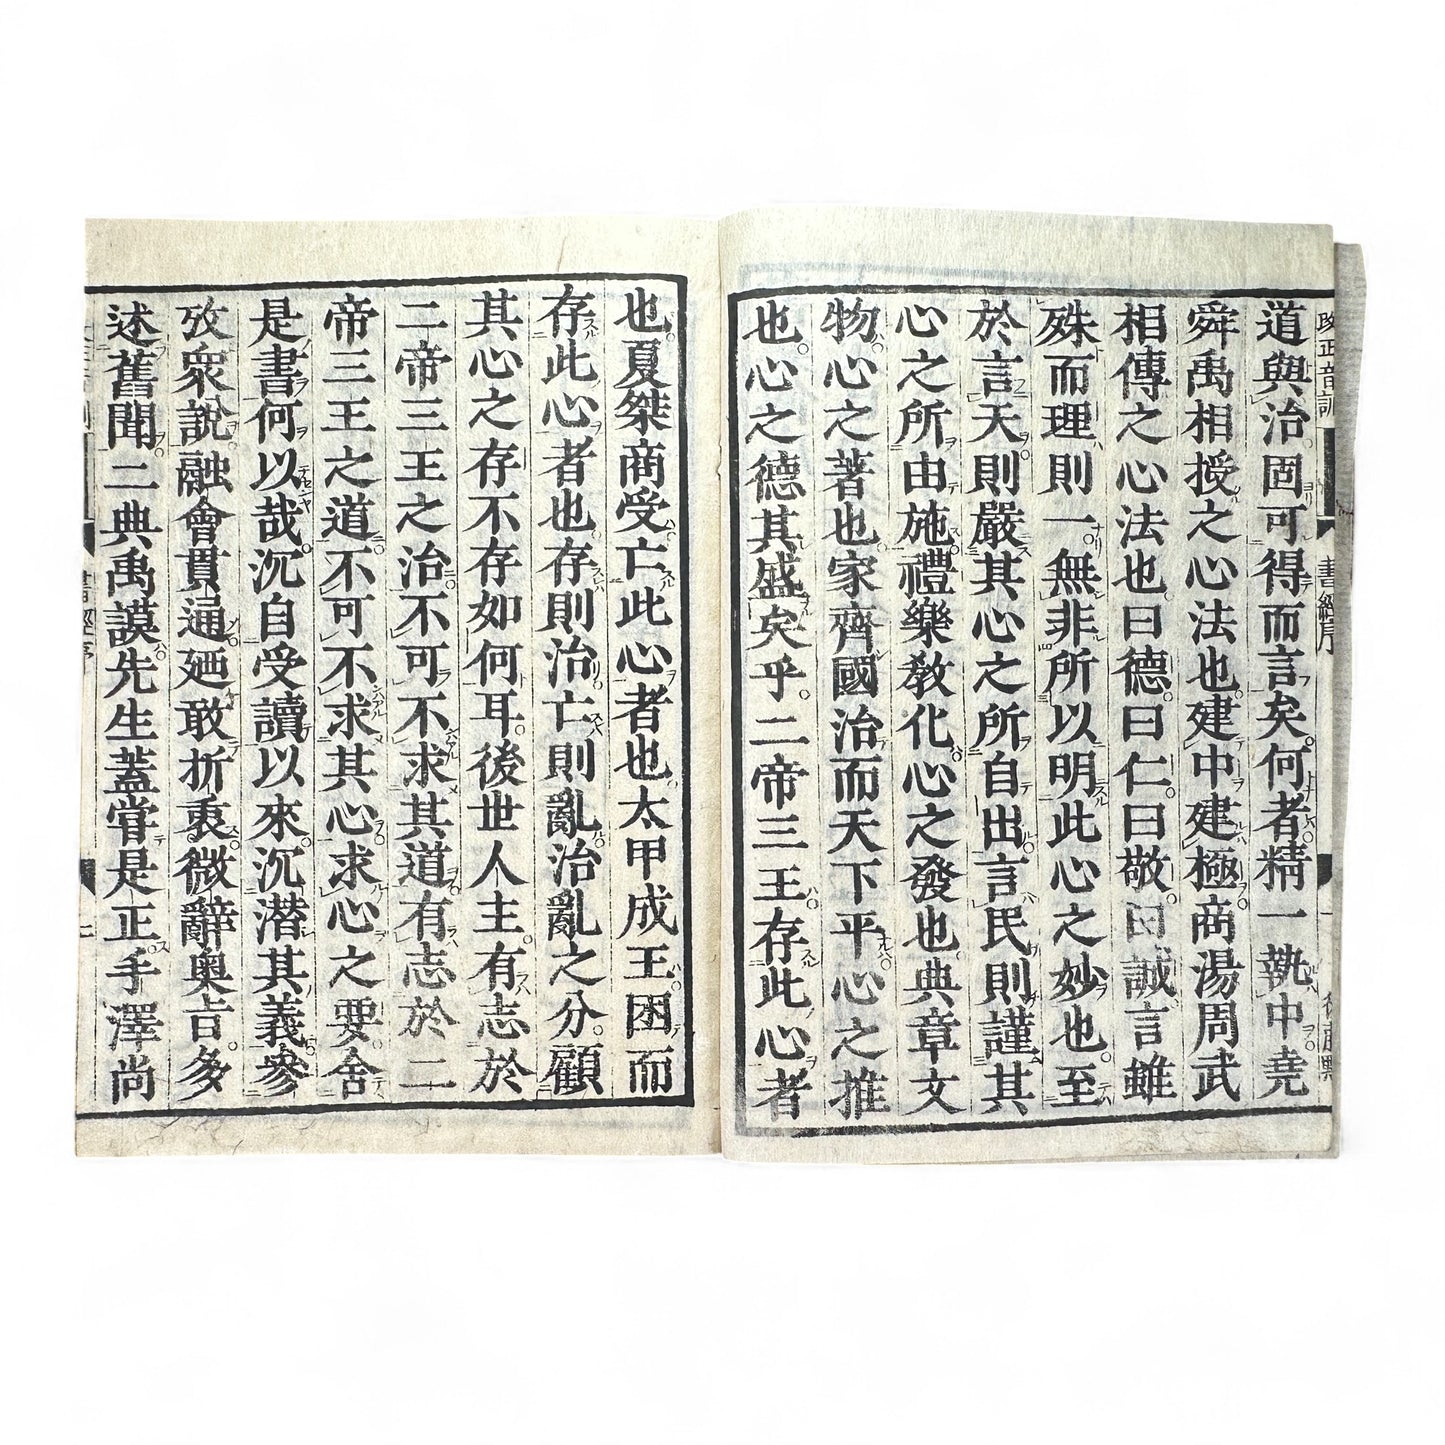 改正音訓
書經序
道與治固可得而言矣何者精一執中堯
舜禹相授之心法也建中建極商湯周武
相傳之心法也曰德曰仁曰敬曰誠言雖
殊而理則一無非所以明此心之妙也至
於言天則嚴其心之所自出言民則謹其
心之所由施禮樂教化心之發也典章文
物心之著也家齊國治而天下平心之推
也心之德其盛矣乎二帝三王存此心者
也夏桀商受亡此心者也太甲成王困而
存此心者也存則治亡則亂治亂之分顧
其心之存不存如何耳後世人主有志於
二帝三王之治不可不求其道有志於二
帝三王之道不可不求其心求心之要舍
是書何以哉沉自受讀以來沉潛其義參
攷衆說融會貫通廼敢折衷微辭奥旨多
述舊聞二典禹謨先生蓋甞是正手澤尚
書經序